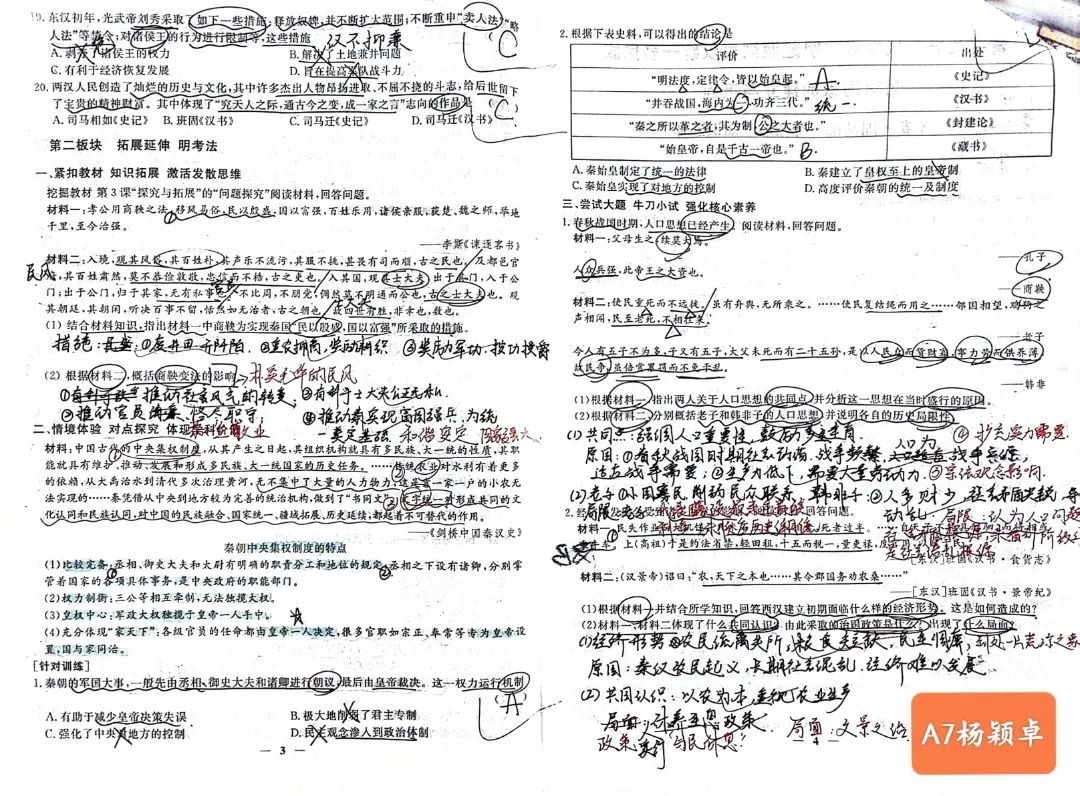 19. 东汉初年,光武帝刘秀采取了如下一些措施:释放奴婢,并不断扩大范围;不断重申“卖人法”“略
人法”等禁令;对诸侯王的行为进行限制等,这些措施
汉不抑兼
C
A. 剥夺了诸侯王的权力 B. 解决了土地兼并问题
C. 有利于经济恢复发展 D. 旨在提高军队战斗力
20. 两汉人民创造了灿烂的历史与文化,其中许多杰出人物昂扬进取、不屈不挠的斗志,给后世留下
了宝贵的精神财富。其中体现了“究天人之际,通古今之变,成一家之言”志向的作品是 ( )
C
A. 司马相如《史记》 B. 班固《汉书》 C. 司马迁《史记》 D. 司马迁《汉书》
第二板块 拓展延伸 明考法
一、紧扣教材 知识拓展 激活发散思维
挖掘教材 第3课“探究与拓展”的“问题探究”阅读材料,回答问题。
材料一:孝公用商鞅之法,移风易俗,民以殷盛,国以富强,百姓乐用,诸侯亲服,获楚、魏之师,举地
千里,至今治强。
——李斯《谏逐客书》
材料二:入境,观其风俗,其百姓朴,其声乐不流污,其服不挑,甚畏有司而顺,古之民也。及都邑官
民风
府,其百吏肃然,莫不恭俭敦敬,忠信而不楛,古之吏也。入其国,观其士大夫,出于其门,入于公
门;出于公门,归于其家,无有私事也。不比周,不朋党,倜然莫不明通而公也,古之士大夫也。观
其朝廷,其朝闲,听决百事不留,恬然如无治者,古之朝也。故四世有胜,非幸也,数也。
(1) 结合材料知识,指出材料一中商鞅为实现秦国“民以殷盛,国以富强”所采取的措施。
措施:①废井田、开阡陌. ②重农抑商,奖励耕织 ③奖励军功,按功授爵
(2) 根据材料二,概括商鞅变法的影响
朴实无华的民风
①推动社会风气的转变; ③有利于士大夫公正无私.
②推动官员恪尽职守, ④推动秦实现富国强兵,为统
一奠定基础
二、情境体验 对点探究 体现学科价值
材料:中国古代的中央集权制度,从其产生之日起,其组织机构就具有多民族、大一统的性质,其职
能就具有维护、推动、发展和形成多民族、大一统国家的历史任务。……传统农业对水利有着更多
的依赖,从大禹治水到清代多次治理黄河,无不集中了大量的人力物力,这是靠一家一户的小农无
法实现的……秦凭借从中央到地方较为完善的统治机构,做到了“书同文”,汉字统一的形成共同的文
化认同和民族认同,对中国的民族融合、国家统一、疆域拓展、历史延续,都起着不可替代的作用。
——《剑桥中国秦汉史》
秦朝中央集权制度的特点
(1)比较完备:丞相、御史大夫和太尉有明晰的职责分工和地位的规定;丞相之下设有诸卿,分别掌
管着国家的各项具体事务,是中央政府的职能部门。
(2)权力制衡:三公等相互牵制,无法独揽大权。
(3)皇权中心:军政大权独揽于皇帝一人手中。
(4)充分体现“家天下”:各级官员的任命都由皇帝一人决定,很多官职如宗正、奉常等专为皇帝设
置,国与家同治。
[针对训练]
1. 秦朝的军国大事,一般先由丞相、御史大夫和诸卿进行朝议,最后由皇帝裁决。这一权力运行机制
A
A. 有助于减少皇帝决策失误 B. 极大地削弱了君主专制
C. 强化了中央对地方的控制 D. 民主观念渗入到政治体制
— 3 —
2. 根据下表史料,可以得出的结论是
评价 出处
“明法度,定律令,皆以始皇起。” A 《史记》
“并吞战国,海内为一,功齐三代。” 统一. 《汉书》
“秦之所以革之者,其为制,公之大者也。” 《封建论》
“始皇帝,自是千古一帝也。” B. 《藏书》
A. 秦始皇制定了统一的法律 B. 秦建立了皇权至上的皇帝制
C. 秦始皇实现了对地方的控制 D. 高度评价秦朝的统一及制度
三、尝试大题 牛刀小试 强化核心素养
1. 春秋战国时期,人口思想已经产生。阅读材料,回答问题。
材料一:父母生之,续莫大焉。
——孔子
人众兵强,此帝王之大资也。
——商鞅
材料二:使民重死而不远徙。虽有舟舆,无所乘之。……使民复结绳而用之……邻国相望,鸡狗之
声相闻,民至老死,不相往来。
——老子
今人有五子不为多,子又有五子,大父未死而有二十五孙,是以人民众而货财寡,事力劳而供养薄,
故民争,虽倍赏累罚而不免于乱。
——韩非
(1)根据材料一,指出两人关于人口思想的共同点,并分析这一思想在当时盛行的原因。
(2)根据材料二,分别概括老子和韩非子的人口思想,并说明各自的历史局限性。
(1) 共同点:强调人口重要性,鼓励多生育. ④扩充实力需要.
原因:①春秋战国时期社会动荡,战争频繁,人口为战争兵源,
适应战争需要;②生产力低下,需要大量劳动力. ③宗法观念影响.
(2) 老子:①小国寡民 削弱民众联系, 韩非子:②人多财少,
局限:认为人口问题
材料一:民失作业
上(高祖)于是约法省禁,轻田租,十五而税一,量吏禄,度
——[东汉]班固《汉书·食货志》
材料二:(汉景帝)诏曰:“农,天下之本也……其令郡国务劝农桑……”
——[东汉]班固《汉书·景帝纪》
(1)根据材料一并结合所学知识,回答西汉建立初期面临什么样的经济形势。这是如何造成的?
(2)材料一、材料二体现了什么共同认识?由此采取的治国政策是什么?出现了什么局面?
(1) 经济形势:农民流离失所,粮食短缺,民生凋敝,到处一片荒凉之象
原因:秦汉农民起义,长期社会混乱,经济难以发展
(2) 共同认识:以农为本,重视农业生产
政策:实行“与民休息” 局面:文景之治
— 4 —
A7杨颖卓